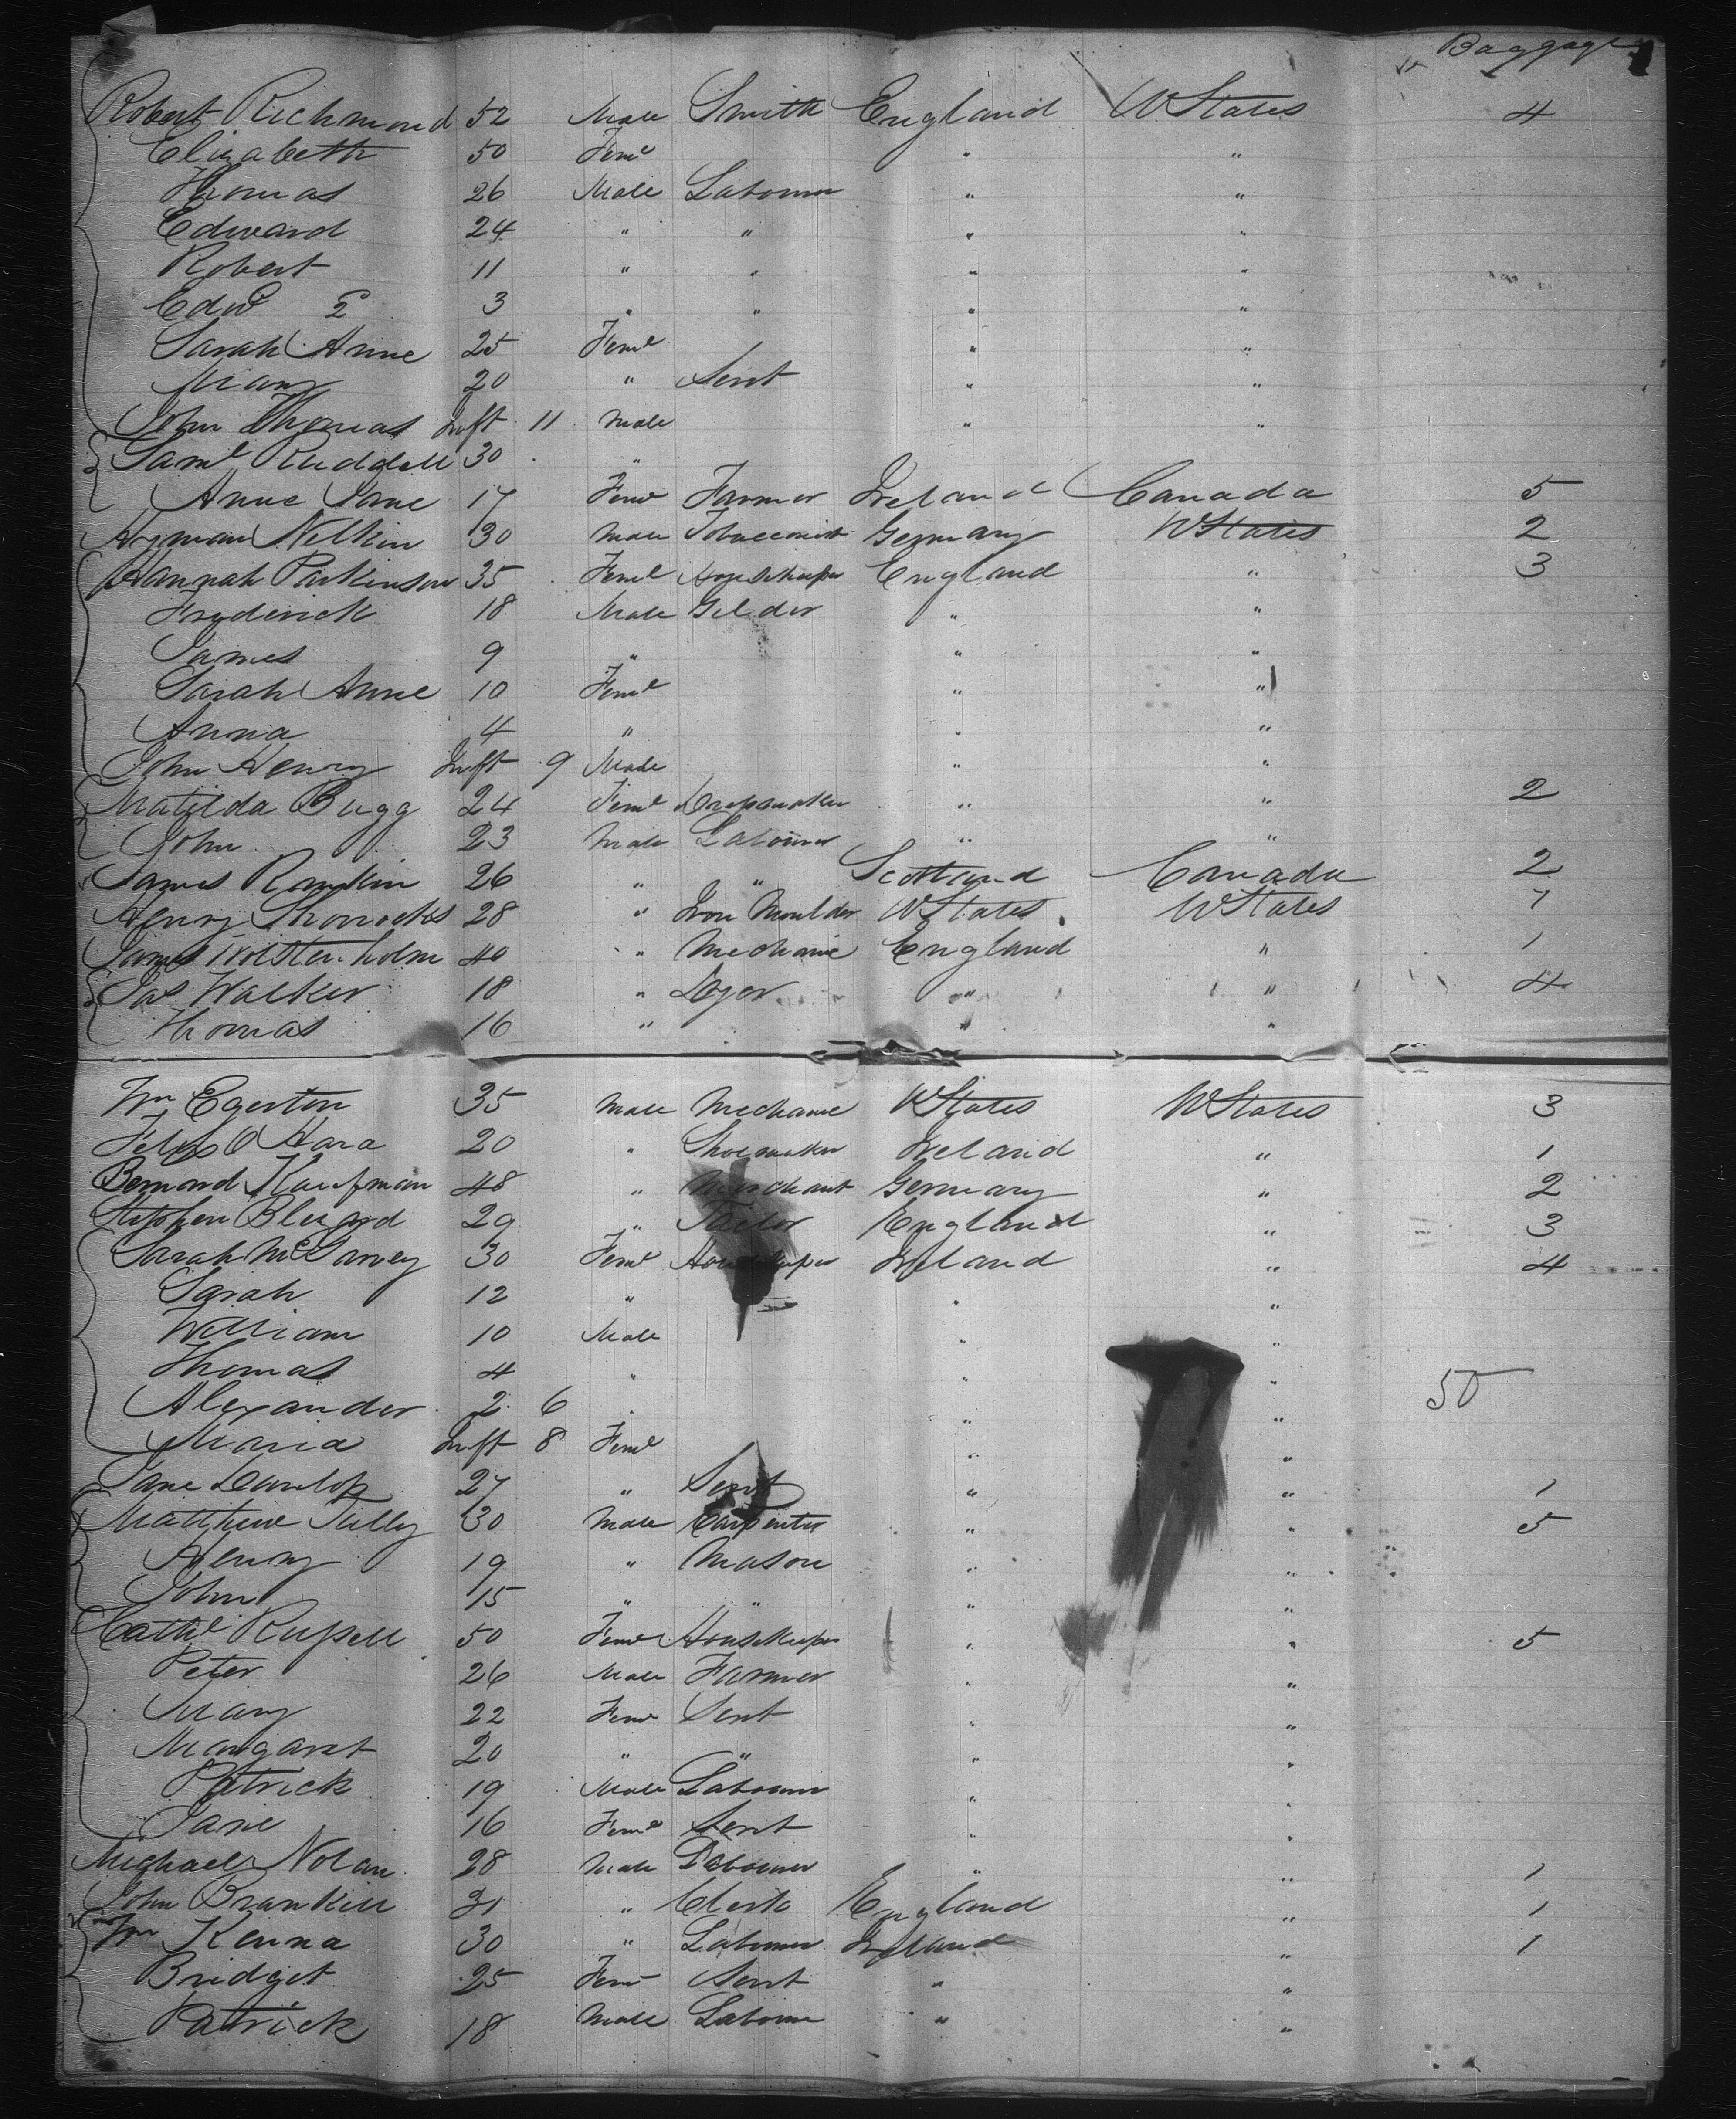 Baggage
Robert Richmond 52 Male Smith England U States 4
Elizabeth 50 Feml " "
Thomas 26 Male Labourer " "
Edward 24 " " " "
Robert 11 " " " "
Edwd 2d 3 " " " "
Sarah Anne 25 Feml " "
Mary 20 " Servt " "
John Thomas Inft 11 Male " "
Saml Ruddell 30 "
Anne Jane 17 Feml Farmer Ireland Canada 5
Hyman Nelkin 30 Male Tobacconist Germany U States 2
Hannah Parkinson 35 Feml Housekeeper England " 3
Frederick 18 Male Gilder " "
James 9 " " "
Sarah Anne 10 Feml " "
Anna 4 " " "
John Henry Inft 9 Male " "
Matilda Bugg 24 Feml Dressmaker " " 2
John 23 Male Labourer " "
James Rankin 26 " " Scotland Canada 2
Henry Shorrocks 28 " Iron Moulder U States U States 7
James Wolstenholm 40 " Mechanic England " 1
Jas Walker 18 " Dyer " " 4
Thomas 16 " " "
Wm Egerton 35 Male Mechanic U States U States 3
Felix O Hara 20 " Shoemaker Ireland " 1
Bernard Kaufman 48 " Merchant Germany " 2
Stephen 29 " Tailor England " 3
Sarah McGarvey 30 Feml Housekeeper Ireland " 4
Sarah 12 " " "
William 10 Male " "
Thomas 4 " " "
Alexander 2 6 " " "
50
Maria Inft 8 Feml " "
Jane Dunlop 27 " Servt " " 1
Matthew Tully 30 Male Carpenter " " 5
Henry 19 " Mason " "
John 15 " " " "
Cathe Russell 50 Feml Housekeeper " " 5
Peter 26 Male Farmer " "
Mary 22 Feml Servt " "
Margaret 20 " " " "
Patrick 19 Male Labourer " "
Jane 16 Feml Servt " "
Michael Nolan 28 Male Labourer " " 1
John 31 " Clerk England " 1
Wm Kenna 30 " Labourer Ireland " 1
Bridget 25 Feml Servt " "
Patrick 18 Male Labourer " "